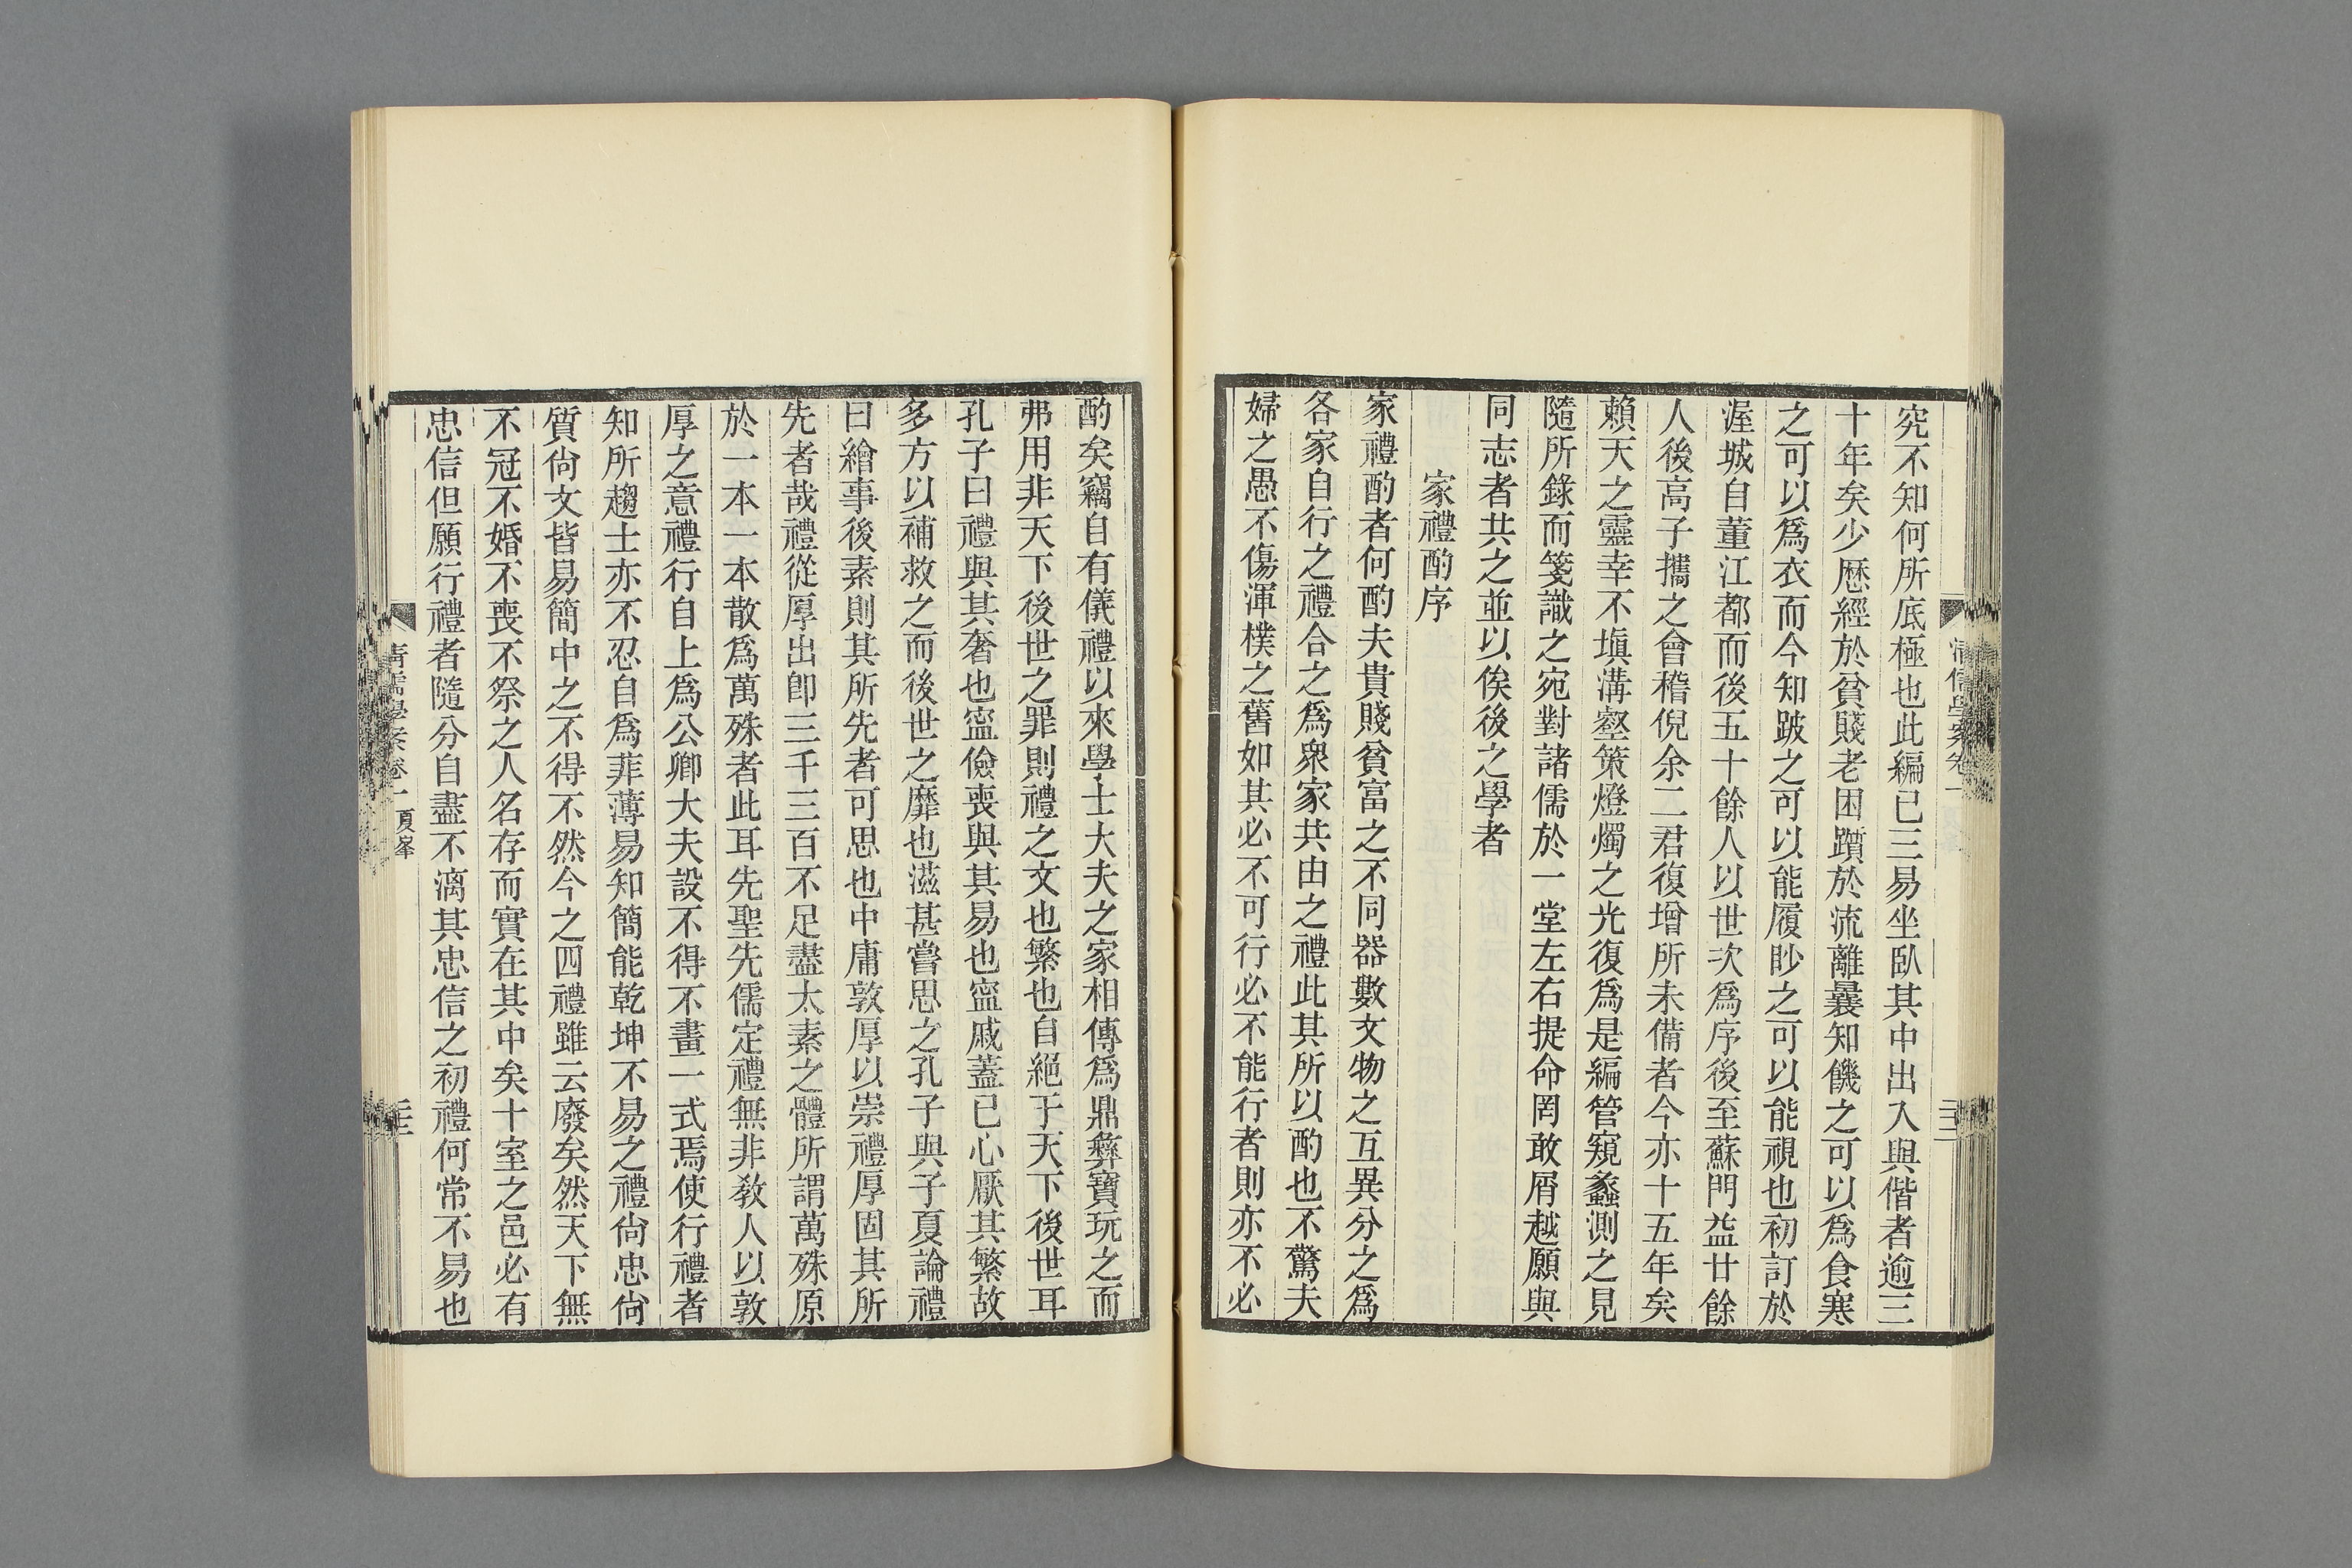 究不知何所底極也此編已三易坐臥其中出入與偕者逾三
十年矣少歷經於貧賤老困躓於流離曩知饑之可以爲食寒
之可以爲衣而今知跛之可以能履眇之可以能視也初訂於
渥城自董江都而後五十餘人以世次爲序後至蘇門益廿餘
人後高子攜之會稽倪余二君復增所未備者今亦十五年矣
賴天之靈幸不塡溝壑策燈燭之光復爲是編管窺蠡測之見
隨所錄而箋識之宛對諸儒於一堂左右提命罔敢屑越願與
同志者共之並以俟後之學者
家禮酌序
家禮酌者何酌夫貴賤貧富之不同器數文物之互異分之爲
各家自行之禮合之爲衆家共由之禮此其所以酌也不驚夫
婦之愚不傷渾樸之舊如其必不可行必不能行者則亦不必
酌矣竊自有儀禮以來學士大夫之家相傳爲鼎彝寶玩之而
弗用非天下後世之罪則禮之文也繁也自絕于天下後世耳
孔子曰禮與其奢也寍儉喪與其易也寍戚蓋已心厭其繁故
多方以補救之而後世之靡也滋甚嘗思之孔子與子夏論禮
曰繪事後素則其所先者可思也中庸敦厚以崇禮厚固其所
先者哉禮從厚出卽三千三百不足盡太素之體所謂萬殊原
於一本一本散爲萬殊者此耳先聖先儒定禮無非敎人以敦
厚之意禮行自上爲公卿大夫設不得不畫一式焉使行禮者
知所趨士亦不忍自爲菲薄易知簡能乾坤不易之禮尙忠尙
質尙文皆易簡中之不得不然今之四禮雖云廢矣然天下無
不冠不婚不喪不祭之人名存而實在其中矣十室之邑必有
忠信但願行禮者隨分自盡不漓其忠信之初禮何常不易也
清儒學案卷一 夏峯